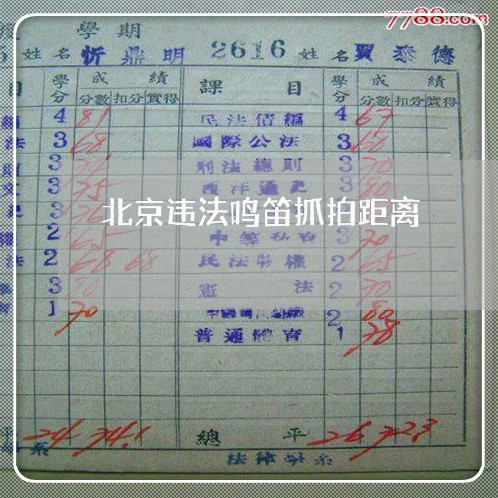 7788.com
學期
姓名 忻鼎明 2616 姓名 賈泰德
目 學分 成績 課目 學分 成績
分數 扣分 實得 分數 扣分 實得
4 81 民法債編 4 67
法 3 68 國際公法 3 60
3 刑法總則 3 70
3 75 西洋通史 3 80
北京违法鸣笛抓拍距离
2 65 3 70
法 2 68 68 民法物權 2 65
3 80 憲法 2 70
1 70 2 80
普通體育 1 78
平 24 74.1 總平 26 72.3
系 法律學系